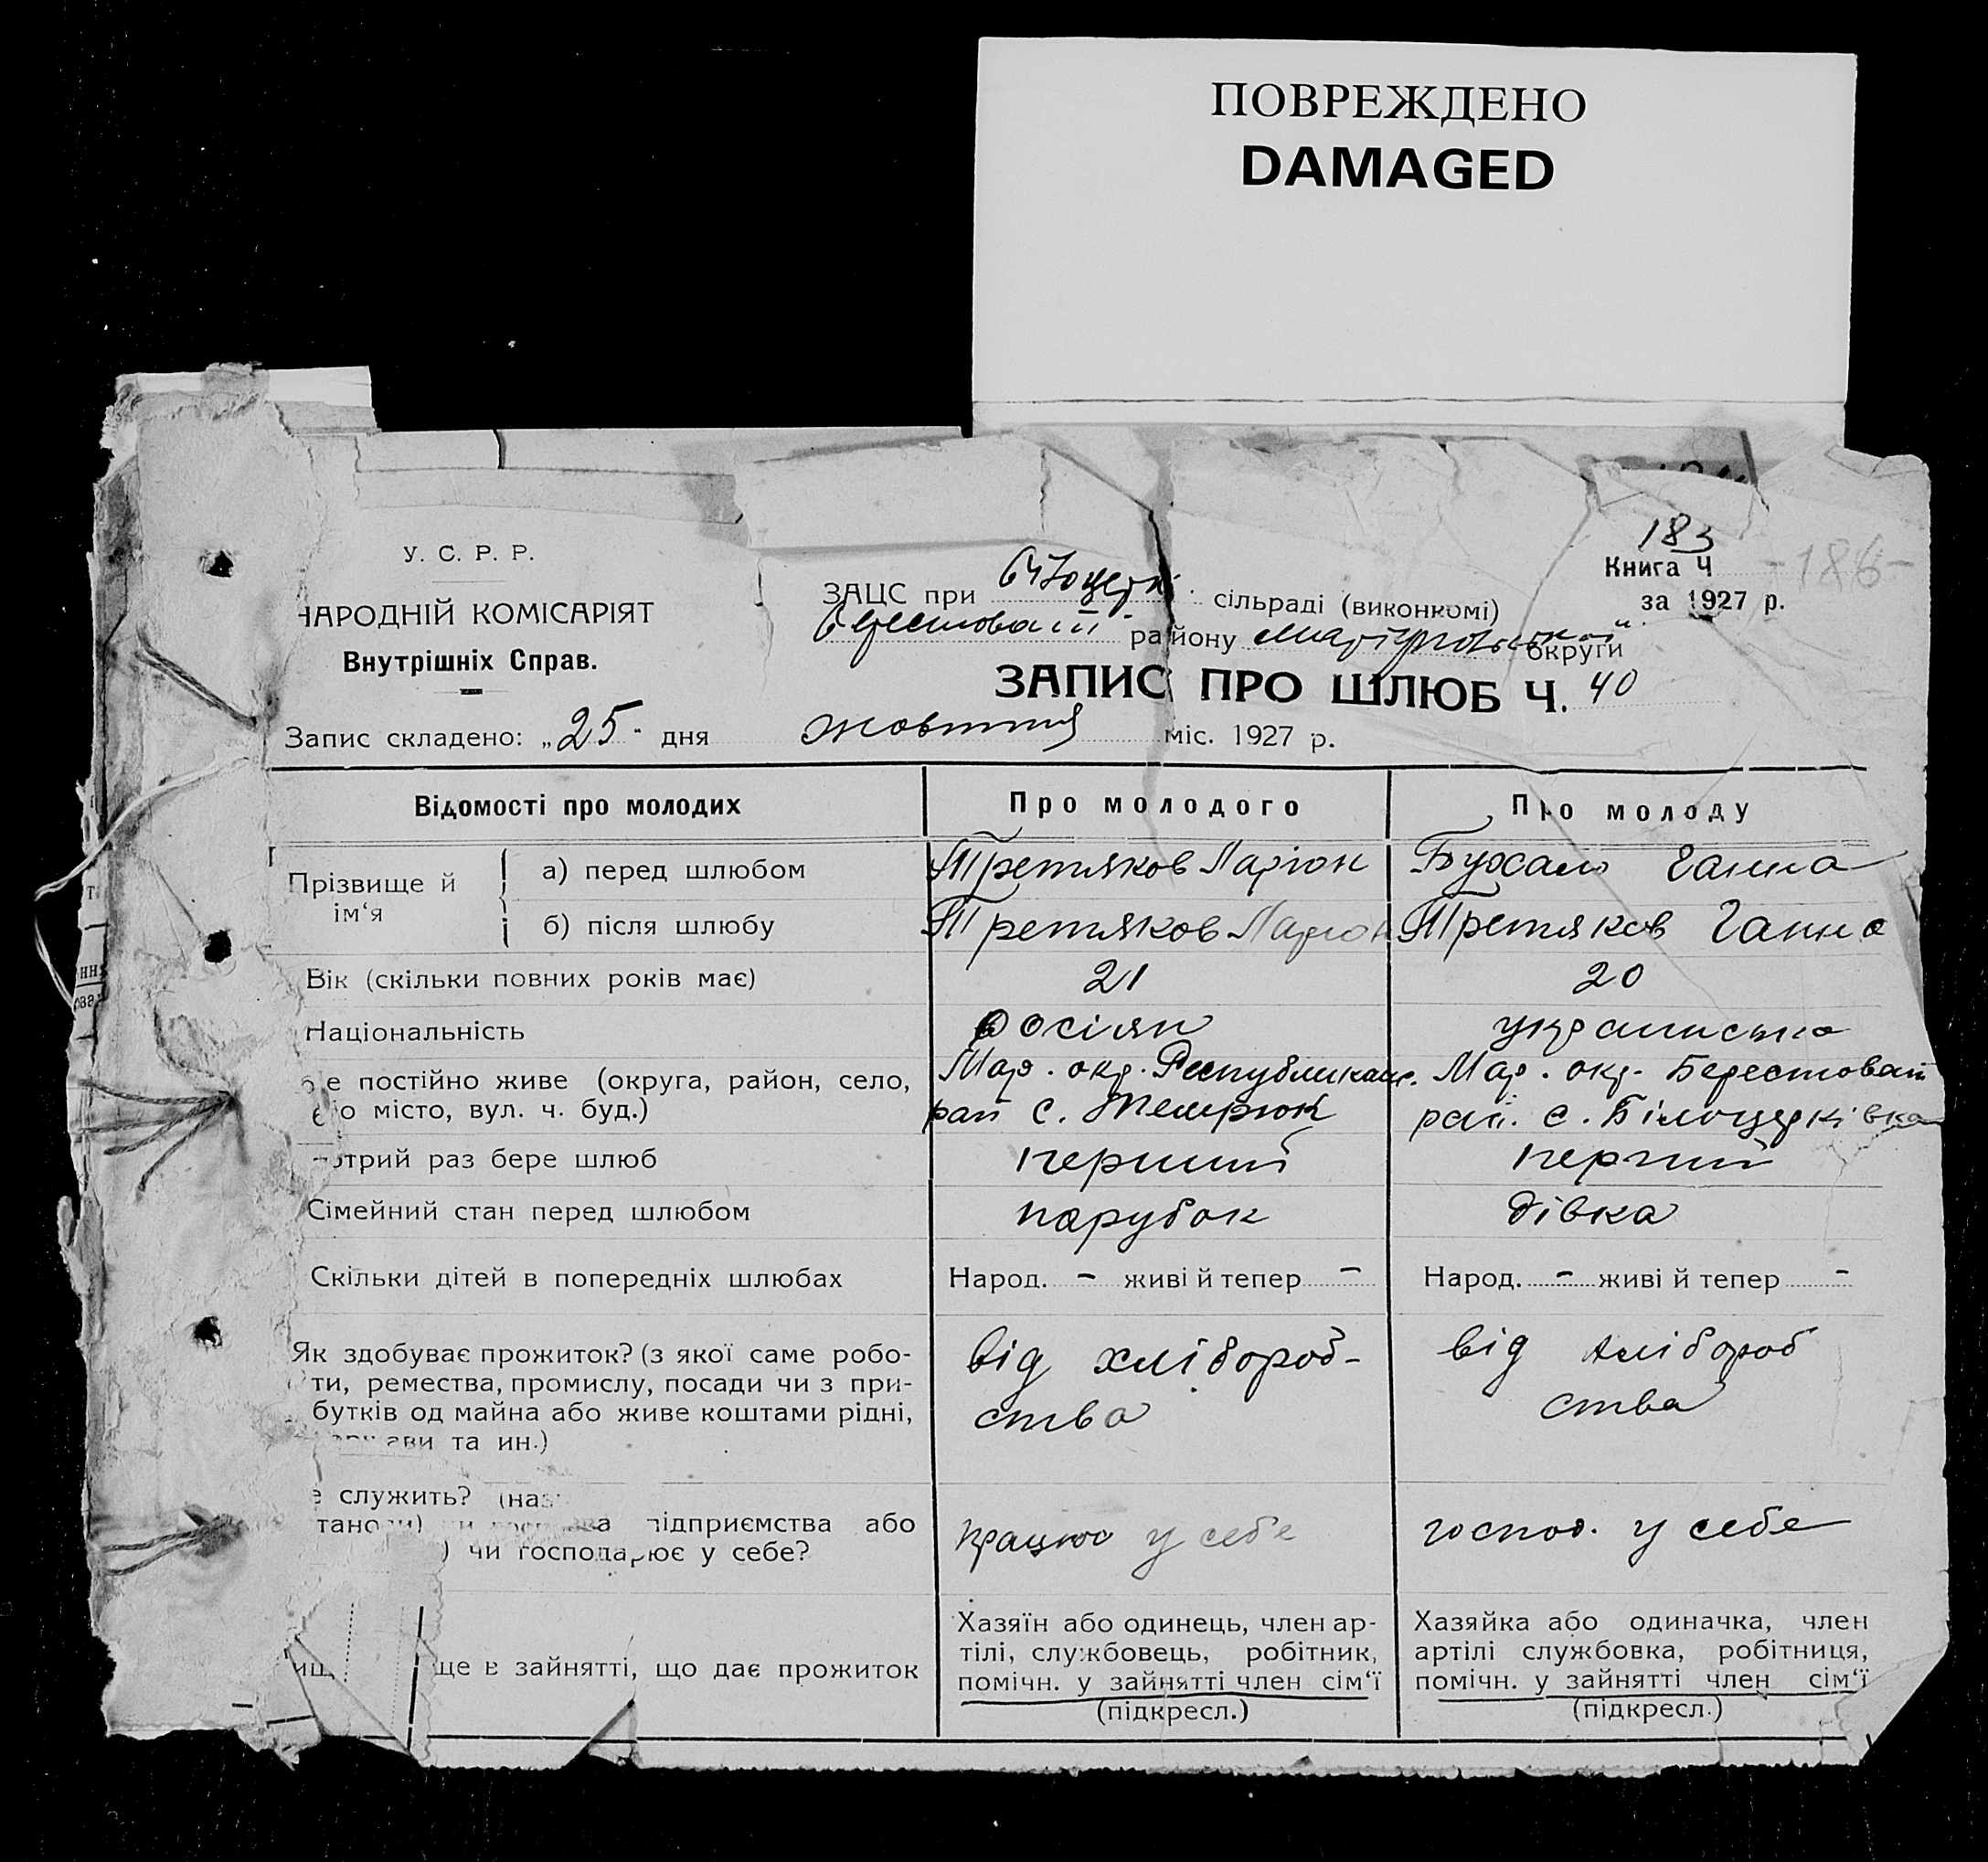 ПОВРЕЖДЕНО
DAMAGED
183
У. С. Р. Р.
Книга Ч -186-
ЗАЦС при сільраді (виконкомі)
за 1927 р.
НАРОДНІЙ КОМІСАРІЯТ
району округи
Внутрішніх Справ.
ЗАПИС ПРО ШЛЮБ Ч. 40
Запис складено: „25" дня жовтня міс. 1927 р.
Відомості про молодих
Про молодого
Про молоду
Прізвище й
ім‘я
а) перед шлюбом
Третяков Ларіон
Ганна
б) після шлюбу
Третяков Ларіон
Третяков Ганна
Вік (скільки повних років має)
21
20
Національність
росіян
українська
е постійно живе (округа, район, село,
о місто, вул. ч. буд.)
Мар. окр. Республіканс.
рай с. Темрюк
Мар. окр. Берестоват
рай. с. Білоцерківка
отрий раз бере шлюб
перший
перший
Сімейний стан перед шлюбом
парубок
дівка
Скільки дітей в попередніх шлюбах
Народ. - живі й тепер -
Народ. - живі й тепер -
Як здобуває прожиток? (з якої саме робо-
ти, ремества, промислу, посади чи з при-
бутків од майна або живе коштами рідні,
ави та ин.)
від хлібороб-
ства
від хлібороб
ства
е служить? (наз
танови) підприємства або
) чи господарює у себе?
працює у себе
господ. у себе
ще в зайнятті, що дає прожиток
Хазяїн або одинець, член ар-
тілі, службовець, робітник,
помічн. у зайнятті член сім‘ї
(підкресл.)
Хазяйка або одиначка, член
артілі службовка, робітниця,
помічн. у зайнятті член сім‘ї
(підкресл.)